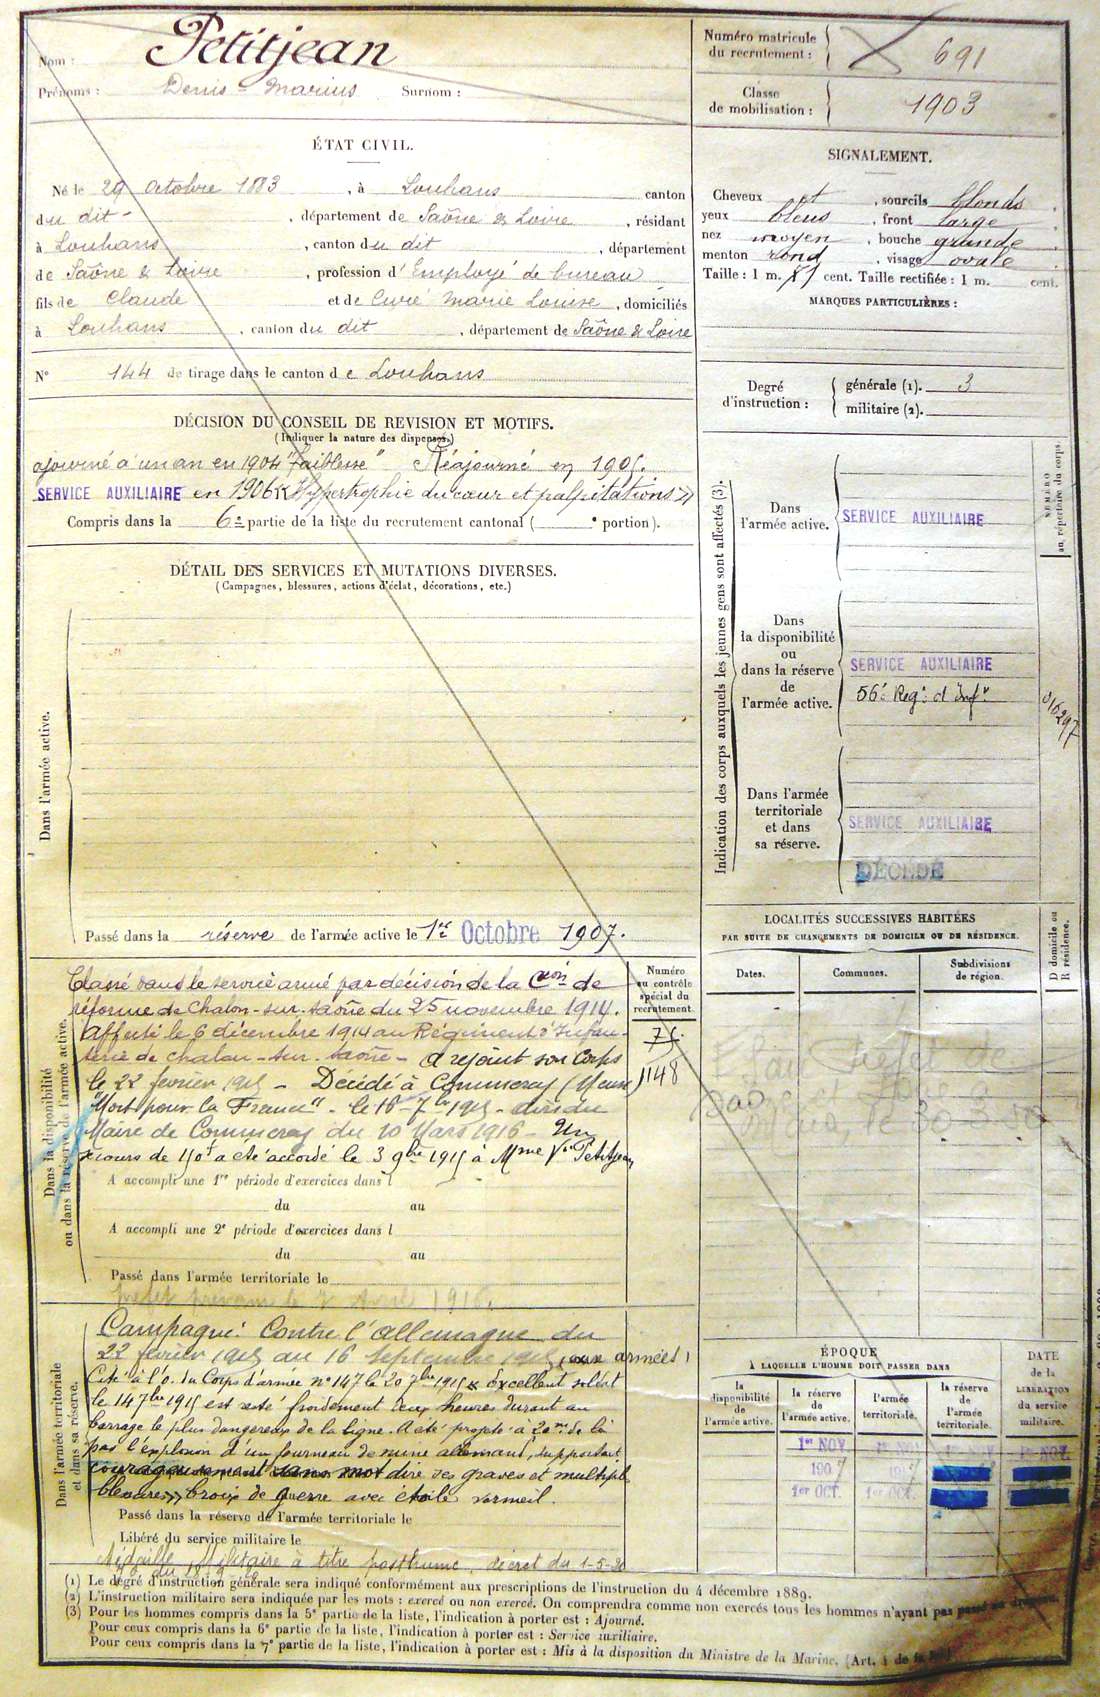 Nom : Petitjean
Prénoms : Denis - Marius Surnom :
Numéro matricule
du recrutement : 691
Classe
de mobilisation : 1903
ÉTAT CIVIL.
Né le 29 Octobre 1883, à Louhans canton
du dit -, département de Saône & Loire, résidant
à Louhans, canton du dit, département
de Saône & Loire, profession d'Employé de bureau
fils de Claude et de Curé Marie Louise, domiciliés
à Louhans, canton du dit, département de Saône & Loire
N° 144 de tirage dans le canton de Louhans
DÉCISION DU CONSEIL DE REVISION ET MOTIFS.
(Indiquer la nature des dispenses.)
ajourné à un an en 1904 "faiblesse" Réajourné en 1905.
SERVICE AUXILIAIRE en 1906 « Hypertrophie du cœur et palpitations »
Compris dans la 6e partie de la liste du recrutement cantonal ( e portion).
DÉTAIL DES SERVICES ET MUTATIONS DIVERSES.
(Campagnes, blessures, actions d'éclat, décorations, etc.)
Dans l'armée active.
Passé dans la réserve de l'armée active le 1er Octobre 1907.
Dans la disponibilité
ou dans la réserve de l'armée active.
Classé dans le service armé par décision de la Con de
réforme de Chalon-sur-Saône du 25 novembre 1914.
Affecté le 6 décembre 1914 au Régiment d'Infan-
terie de Chalon-sur-Saône - A rejoint son Corps
le 22 février 1915 - Décédé à Commercy (Meuse)
"Mort pour la France" - le 16-7bre 1915 - avis du
Maire de Commercy du 10 Mars 1916 - Un
secours de 150f a été accordé le 3 9bre 1915 à Mme Vve Petitjean
Numéro
au contrôle
spécial du
recrutement.
1148
A accompli une 1re période d'exercices dans l
du au
A accompli une 2e période d'exercices dans l
du au
Passé dans l'armée territoriale le
Avril 1916.
Dans l'armée territoriale
et dans sa réserve.
Campagne : Contre l'Allemagne du
22 février 1915 au 16 Septembre 1915 (aux armées)
Cité à l'O. du Corps d'armée n° 147 le 20 7bre 1915 « excellent soldat
le 14 7bre 1915 est resté froidement deux heures durant au
barrage le plus dangereux de la ligne. A été projeté à 20m de là
par l'explosion d'un fourneau de mine allemand, supportant
courageusement sans mot dire ses graves et multiples
blessures » Croix de guerre avec étoile vermeil.
Passé dans la réserve de l'armée territoriale le
Libéré du service militaire le
Médaille Militaire à titre posthume, décret du 1-5-20
(1) Le degré d'instruction générale sera indiqué conformément aux prescriptions de l'instruction du 4 décembre 1889.
(2) L'instruction militaire sera indiquée par les mots : exercé ou non exercé. On comprendra comme non exercés tous les hommes n'ayant pas passé
(3) Pour les hommes compris dans la 5e partie de la liste, l'indication à porter est : Ajourné.
Pour ceux compris dans la 6e partie de la liste, l'indication à porter est : Service auxiliaire.
Pour ceux compris dans la 7e partie de la liste, l'indication à porter est : Mis à la disposition du Ministre de la Marine. (Art. 4 de la loi)
SIGNALEMENT.
Cheveux et, sourcils blonds
yeux bleus, front large,
nez moyen, bouche grande,
menton rond, visage ovale.
Taille : 1 m. cent. Taille rectifiée : 1 m. cent.
MARQUES PARTICULIÈRES :
Degré
d'instruction :
générale (1). 3
militaire (2).
Indication des corps auxquels les jeunes gens sont affectés (3).
NUMÉRO
au répertoire du corps.
Dans
l'armée active.
SERVICE AUXILIAIRE
Dans
la disponibilité
ou
dans la réserve
de
l'armée active.
SERVICE AUXILIAIRE
56e Regt d'Infie
016297
Dans l'armée
territoriale
et dans
sa réserve.
SERVICE AUXILIAIRE
DÉCÉDÉ
LOCALITÉS SUCCESSIVES HABITÉES
PAR SUITE DE CHANGEMENTS DE DOMICILE OU DE RÉSIDENCE.
D domicile ou
R résidence.
Dates.
Communes.
Subdivisions
de région.
ÉPOQUE
À LAQUELLE L'HOMME DOIT PASSER DANS
DATE
DE LA
LIBÉRATION
du service
militaire.
la
disponibilité
de
l'armée active.
la réserve
de
l'armée active.
l'armée
territoriale.
la réserve
de
l'armée
territoriale.
1er NOV.
1907
1er OCT. 1er OCT.